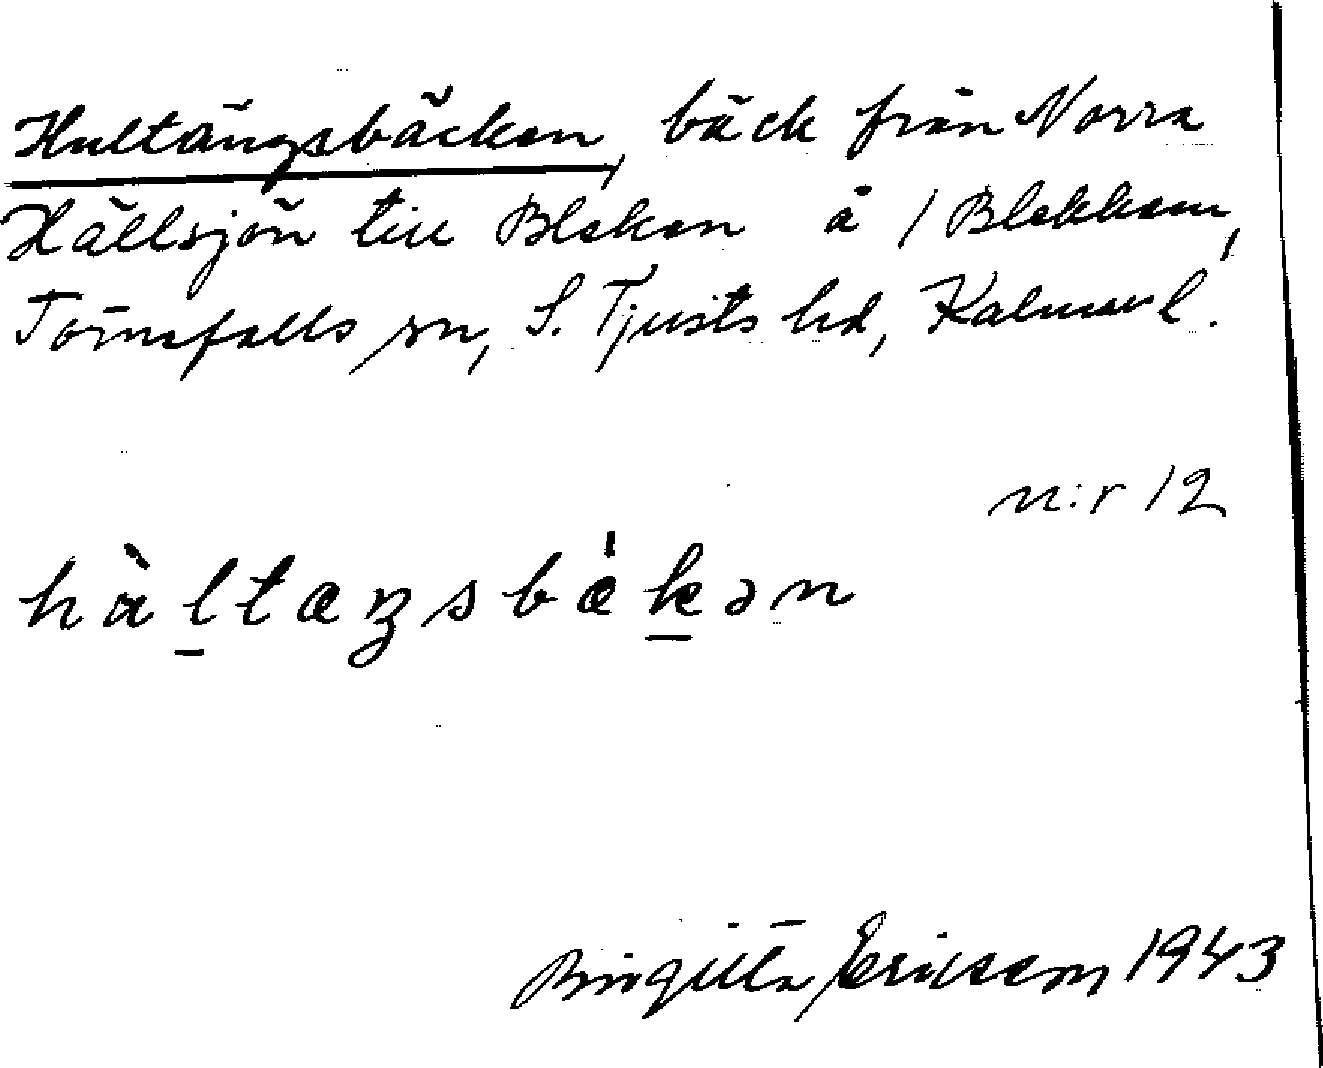 Hultängsbäcken, bäck från Norra
Hällsjön till Bleken å / Blekhem,
Törnsfalls sn, S. Tjusts hd, Kalmar l.
n:r 12
hàltæŋsbækən
Birgitta Ericson 1943